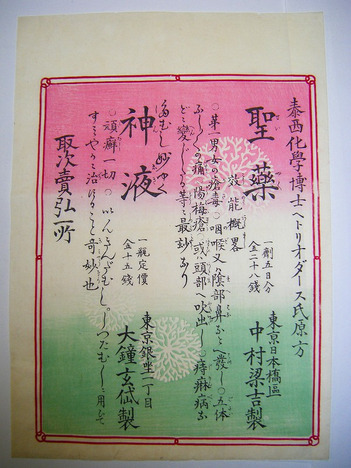 泰西化學博士ヘトリオダース氏原方
聖藥
一劑五日分
金二十八錢
東京日本橋區
中村梁吉製
効能概畧
○第一男女の瘡毒○咽喉又ハ陰部鼻などへ發し○五体
ふし〲の痛○楊梅瘡○或ハ頭部へ吹出し○痔痳病など
どに變じたる等に最妙なり
神液
一瓶定價
金十五錢
東京銀座一丁目
大鐘玄岱製
○頑癬一切○いんきんたむし○ぜにたむしに用ひて
すミやかに治すること奇妙也
取次賣弘所